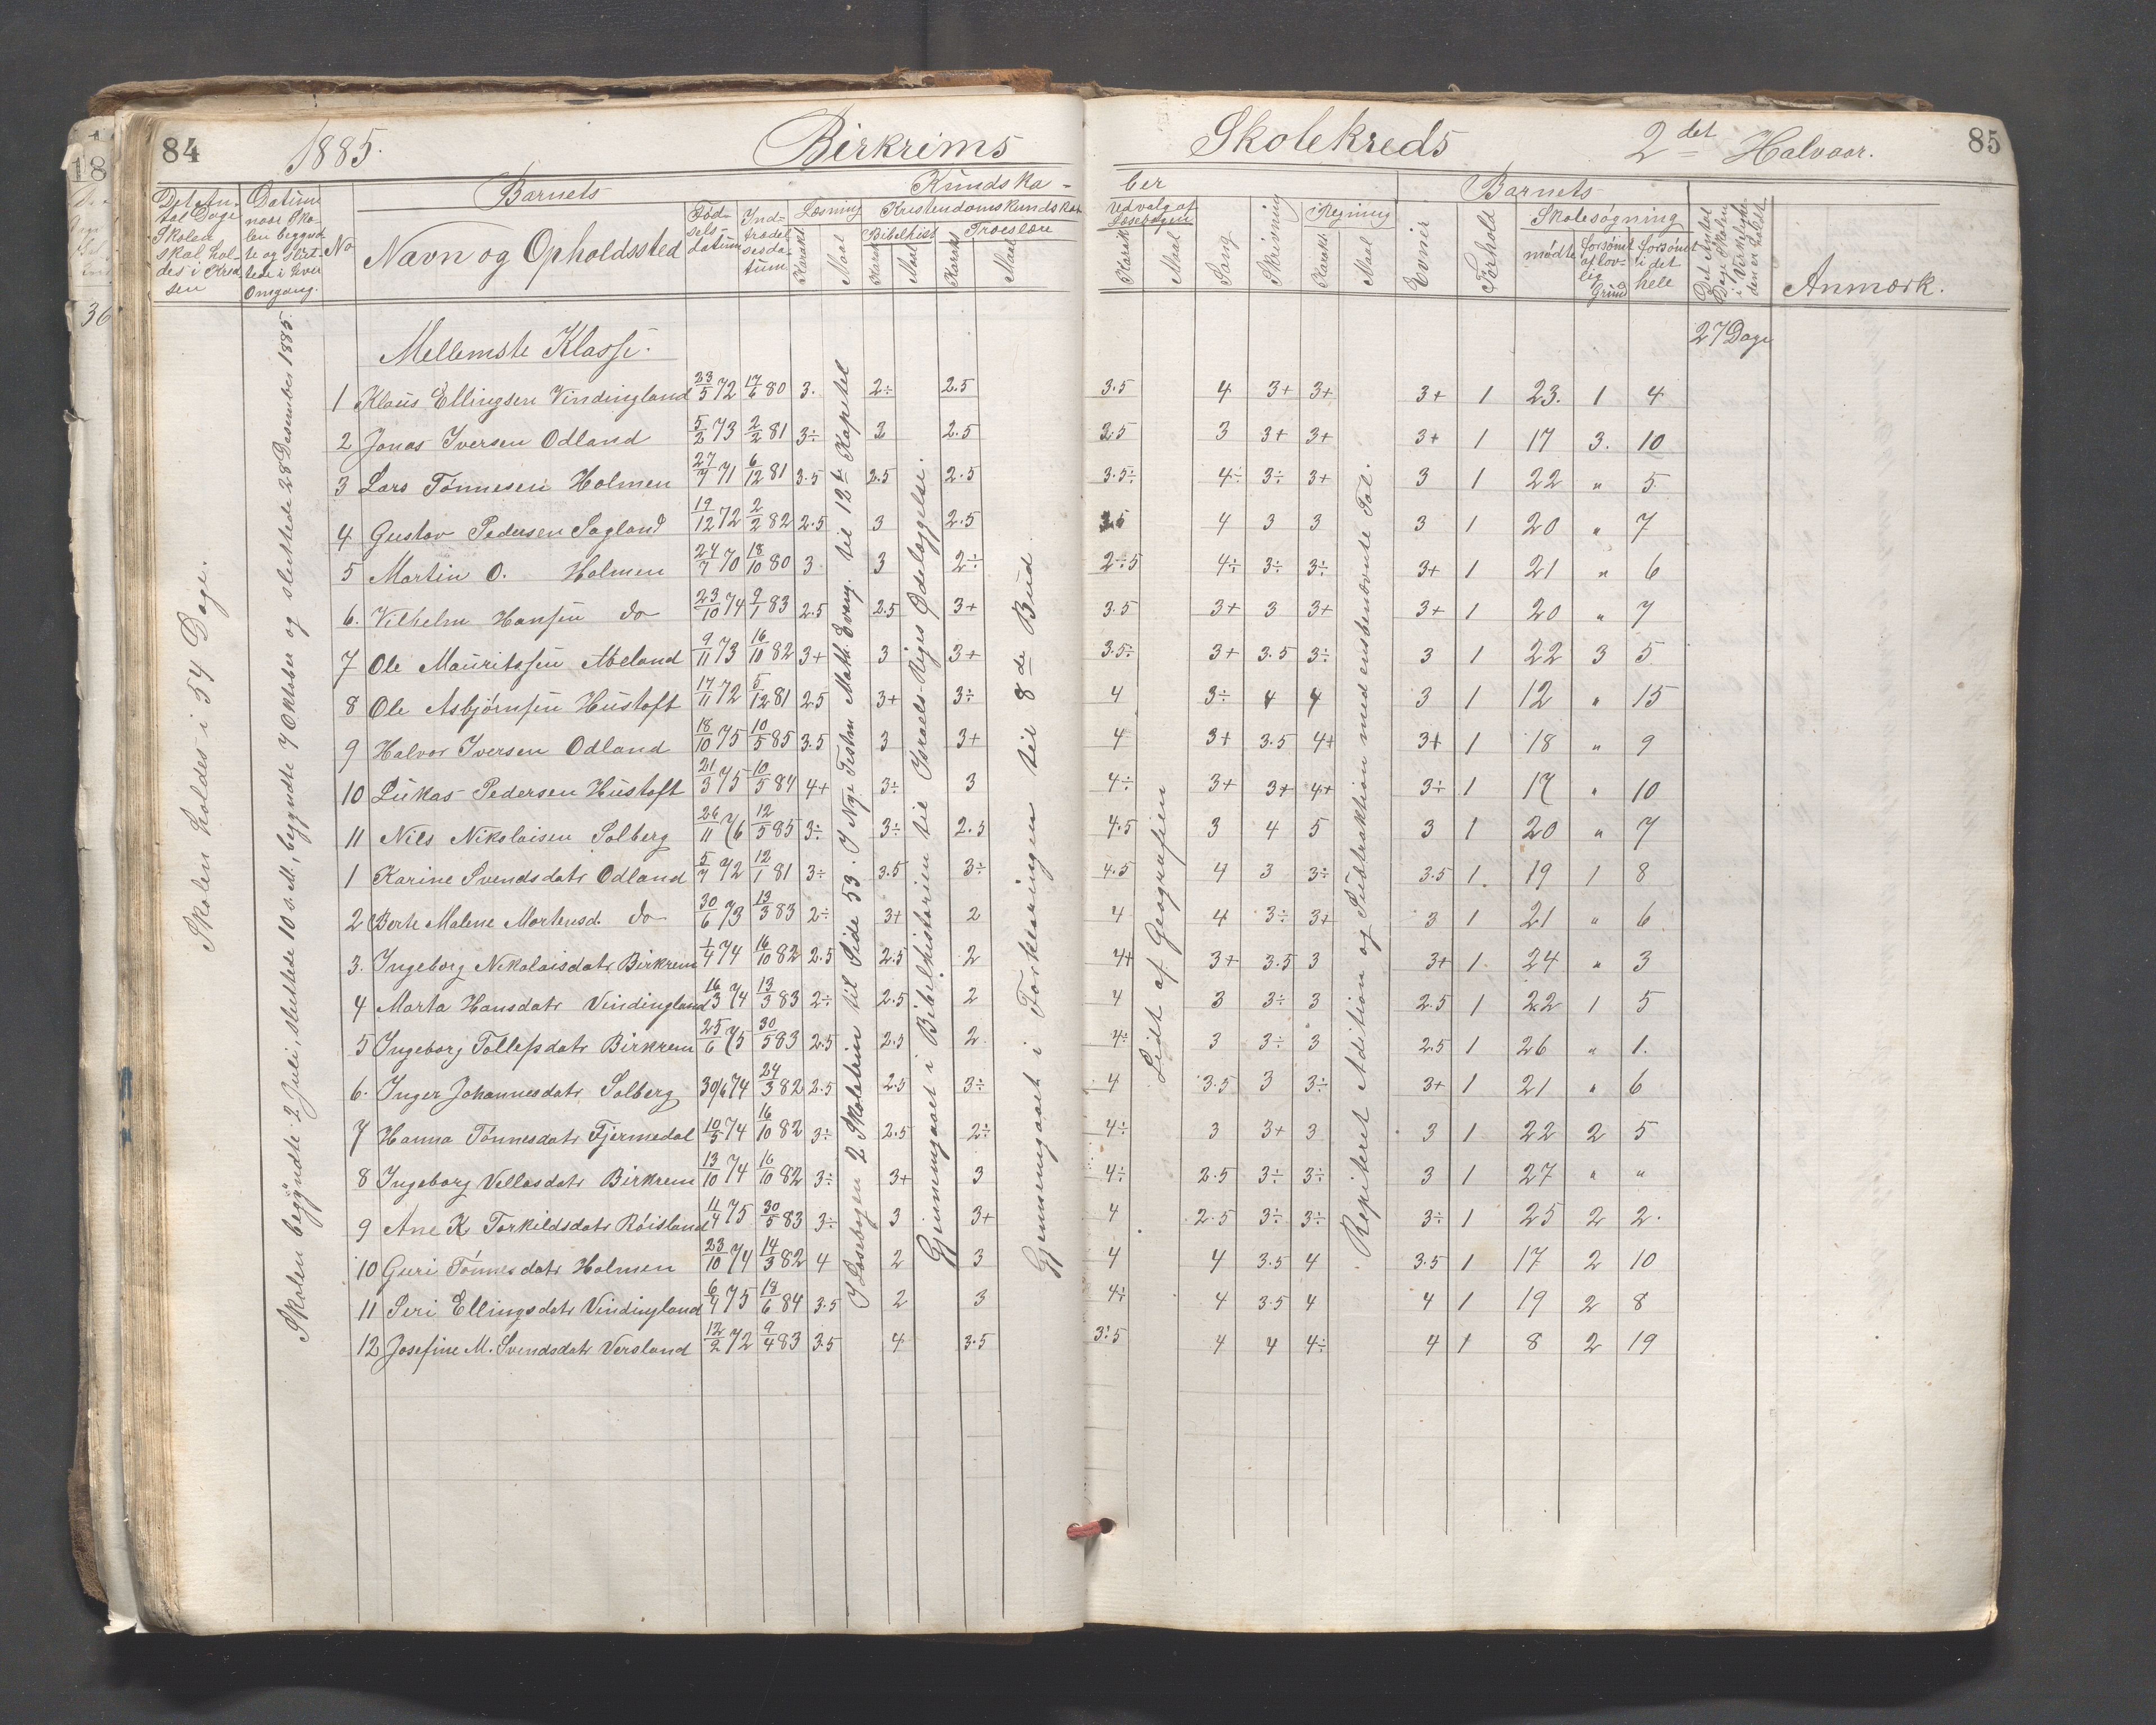 84 1885. Birkrims Skolekreds 2det Halvaar. 85
Barnets Kundska- ber Barnets
Det An- tal Dage Skolen skal hol- des i Kred- sen
Datum naar Sko- len begynd te og slut- tede i hver Omgang.
No
Navn og Opholdssted
Fød- sels- datum
Ind- trædel- sesda- tum
Læsning Karakt. Maal
Kristendomskundskab
Bibelhist. Karakt Maal
Troeslære Karakt Maal
Udvalg af Læsebogen Karakt Maal
Sang
Skrivning
Regning Karakt. Maal
Evner
Forhold
Skolesøgning
mødte
forsømt af lov- lig Grund
forsømt i det hele
Det Antal Dage Skolen i Virkelighe- den er holdt
Anmærk.
Skolen holdes i 54 Dage.
Skolen begyndte 2 Juli, sluttede 10 s. M., begyndte 7 Oktober og sluttede 28 Desember 1885.
Mellemste Klasse.
27 Dage
1 Klaus Ellingsen Vindingland 23/5 72 17/6 80 3. 2÷ 2.5 3.5 4 3+ 3+ 3+ 1 23. 1 4
2 Jonas Iversen Odland 5/2 73 2/2 81 3÷ 3 2.5 3.5 3 3+ 3+ 3+ 1 17 3. 10
3 Lars Tønnesen Holmen 27/7 71 6/12 81 3.5 2.5 2.5 3.5÷ 4÷ 3÷ 3+ 3 1 22 " 5
4 Gustav Pedersen Sagland 19/12 72 2/2 82 2.5 3 2.5 3.5 4 3 3 3 1 20 " 7
5 Martin O. Holmen 24/7 70 18/10 80 3 3 2÷ 2÷5 4÷ 3÷ 3÷ 3+ 1 21 " 6
6. Vilhelm Hansen do 23/10 74 9/1 83 2.5 2.5 3+ 3.5 3+ 3 3+ 3+ 1 20 " 7
7 Ole Mauritssen Mæland 9/11 73 16/10 82 3+ 3 3+ 3.5÷ 3+ 3.5 3÷ 3 1 22 3 5
8 Ole Asbjørnsen Hustoft 17/11 72 5/12 81 2.5 3+ 3÷ 4 3÷ 4 4 3 1 12 " 15
9 Halvor Iversen Odland 18/10 75 10/5 85 3.5 3 3+ 4 3+ 3.5 4+ 3+ 1 18 " 9
10 Lukas Pedersen Hustoft 21/3 75 10/5 84 4+ 3÷ 3 4÷ 3+ 3+ 4+ 3÷ 1 17 " 10
11 Nils Nikolaisen Solberg 26/11 76 12/5 85 3÷ 3÷ 2.5 4.5 3 4 5 3 1 20 " 7
1 Karine Svendsdatr Odland 5/7 72 12/1 81 3÷ 3.5 3÷ 4.5 4 3 3÷ 3.5 1. 19 1 8
2 Berte Malene Mortensd. do 30/6 73 13/3 83 2÷ 3+ 2 4 4 3÷ 3+ 3 1 21 " 6
3. Ingeborg Nikolaisdatr Birkrem 1/4 74 16/10 82 2.5 2.5 2 4+ 3+ 3.5 3 3+ 1. 24 " 3
4 Marta Hansdatr Vindingland 16/3 74 13/3 83 2÷ 2.5 2 4 3 3÷ 3 2.5 1 22 1 5
5 Ingeborg Tollefsdatr Birkrem 25/6 75 30/5 83 2.5 2.5 2 4÷ 3 3÷ 3 2.5 1 26 " 1.
6. Inger Johannesdatr Solberg 30/6 74 24/3 82 2.5 2.5 3÷ 4 3.5 3 3÷ 3+ 1 21 " 6
7 Hanna Tønnesdatr Fjermedal 10/5 74 16/10 82 3÷ 2.5 2÷ 4÷ 3 3+ 3 3 1 22 2 5
8 Ingeborg Vellasdatr Birkrem 13/10 74 16/10 82 3÷ 3+ 3 4÷ 2.5 3÷ 3÷ 3 1 27 " "
9 Ane K Torkildsdatr Røisland 11/4 75 30/5 83 3÷ 3 3+ 4 2.5 3÷ 3÷ 3÷ 1 25 2 2.
10 Guri Tønnesdatr Holmen 23/10 74 14/3 82 4 2 3 4 4 3.5 4 3.5 1 17 2 10
11 Seri Ellingsdatr Vindingland 6/4 75 18/6 84 3.5 2 3 4÷ 4 3.5 4 4 1 19 2 8
12 Josefine M. Svendsdatr Versland 12/2 72 9/4 83 3.5 4 3.5 3÷5 4 4 4÷ 4 1 8 2 19
I Læsebogen 2 Skoletrin til Side 53. I Nye Testm Math. Evang. til 12te Kapitel
Gjennemgaaet i Bibelhistorien til Israels-Riges Ødelæggelse.
Gjennemgaaet i Forklaringen til 8de Bud.
Lidt af Geografien
Repiteret Adition og Subtraktion med ensbenævnte Tal.